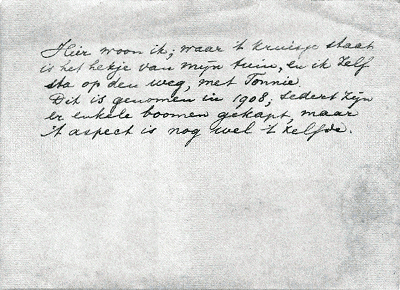 Hier woon ik; waar 't kruisje staat
is het hekje van mijn tuin, en ik zelf
sta op den weg, met Tonnie.
Dit is genomen in 1908; sedert zijn
er enkele boomen gekapt, maar
't aspect is nog wel 't zelfde.